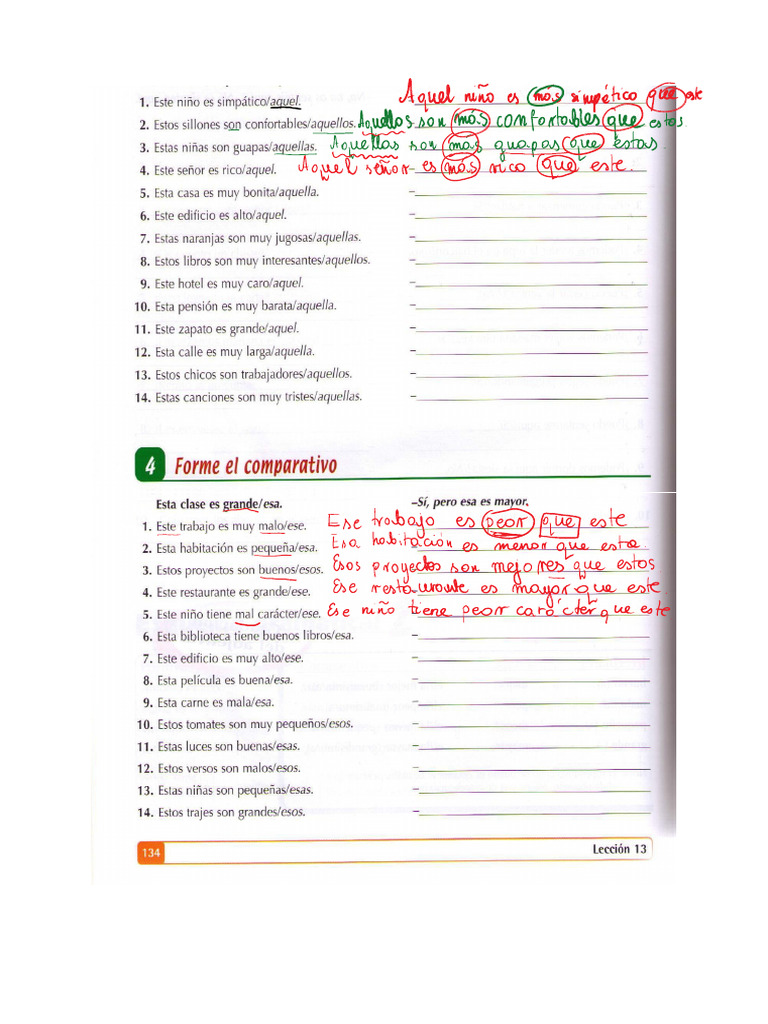 1. Este niño es simpático/aquel. Aquel niño es mas simpético que este
2. Estos sillones son confortables/aquellos. Aquellos son más confortables que estos
3. Estas niñas son guapas/aquellas. Aquellas son mas guapas que estas.
4. Este señor es rico/aquel. Aquel señor es más rico que este.
5. Esta casa es muy bonita/aquella. –
6. Este edificio es alto/aquel. –
7. Estas naranjas son muy jugosas/aquellas. –
8. Estos libros son muy interesantes/aquellos. –
9. Este hotel es muy caro/aquel. –
10. Esta pensión es muy barata/aquella. –
11. Este zapato es grande/aquel. –
12. Esta calle es muy larga/aquella. –
13. Estos chicos son trabajadores/aquellos. –
14. Estas canciones son muy tristes/aquellas. –
4 Forme el comparativo
Esta clase es grande/esa. –Sí, pero esa es mayor.
1. Este trabajo es muy malo/ese. Ese trabajo es peor que este
2. Esta habitación es pequeña/esa. Esa habitación es menor que esta.
3. Estos proyectos son buenos/esos. Esos proyectos son mejores que estos
4. Este restaurante es grande/ese. Ese restaurante es mayor que este.
5. Este niño tiene mal carácter/ese. Ese niño tiene peor carácter que este
6. Esta biblioteca tiene buenos libros/esa. –
7. Este edificio es muy alto/ese. –
8. Esta película es buena/esa. –
9. Esta carne es mala/esa. –
10. Estos tomates son muy pequeños/esos. –
11. Estas luces son buenas/esas. –
12. Estos versos son malos/esos. –
13. Estas niñas son pequeñas/esas. –
14. Estos trajes son grandes/esos. –
134 Lección 13